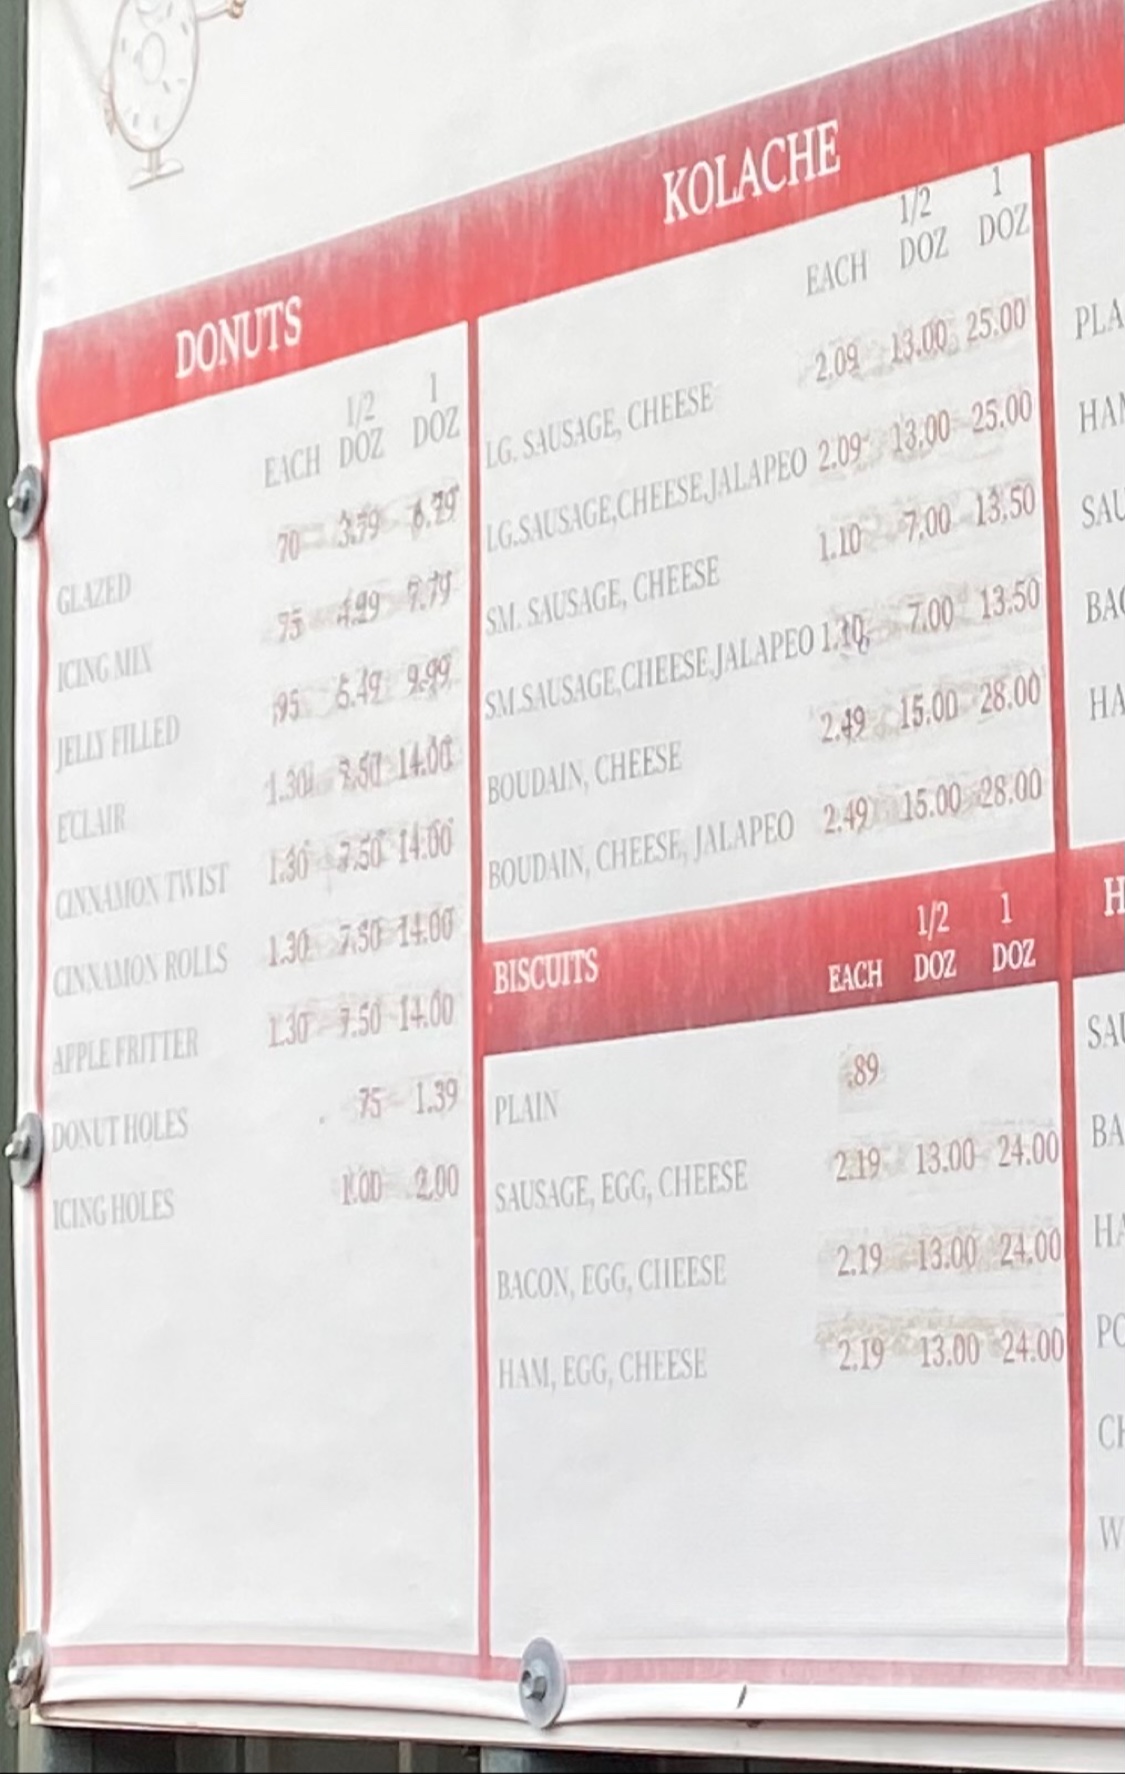 DONUTS
1/2 1
EACH DOZ DOZ
GLAZED 70 3.79 6.79
ICING MIX 75 4.99 7.79
JELLY FILLED .95 9.99
ECLAIR 1.30 7.50 14.00
CINNAMON TWIST 1.30 7.50 14.00
CINNAMON ROLLS 1.30 7.50 14.00
APPLE FRITTER 1.30 7.50 14.00
DONUT HOLES . 75 1.39
ICING HOLES 1.00 2.00
KOLACHE
1/2 1
EACH DOZ DOZ
LG. SAUSAGE, CHEESE 2.09 13.00 25.00
LG.SAUSAGE,CHEESE,JALAPEO 2.09 13.00 25.00
SM. SAUSAGE, CHEESE 1.10 7.00 13.50
SM.SAUSAGE,CHEESE,JALAPEO 1.10 7.00 13.50
BOUDAIN, CHEESE 2.49 15.00 28.00
BOUDAIN, CHEESE, JALAPEO 2.49 15.00 28.00
1/2 1
BISCUITS EACH DOZ DOZ
PLAIN .89
SAUSAGE, EGG, CHEESE 2.19 13.00 24.00
BACON, EGG, CHEESE 2.19 13.00 24.00
HAM, EGG, CHEESE 2.19 13.00 24.00
PLA
HAM
SAU
BAC
HA
H
SAU
BA
HA
PO
CH
W